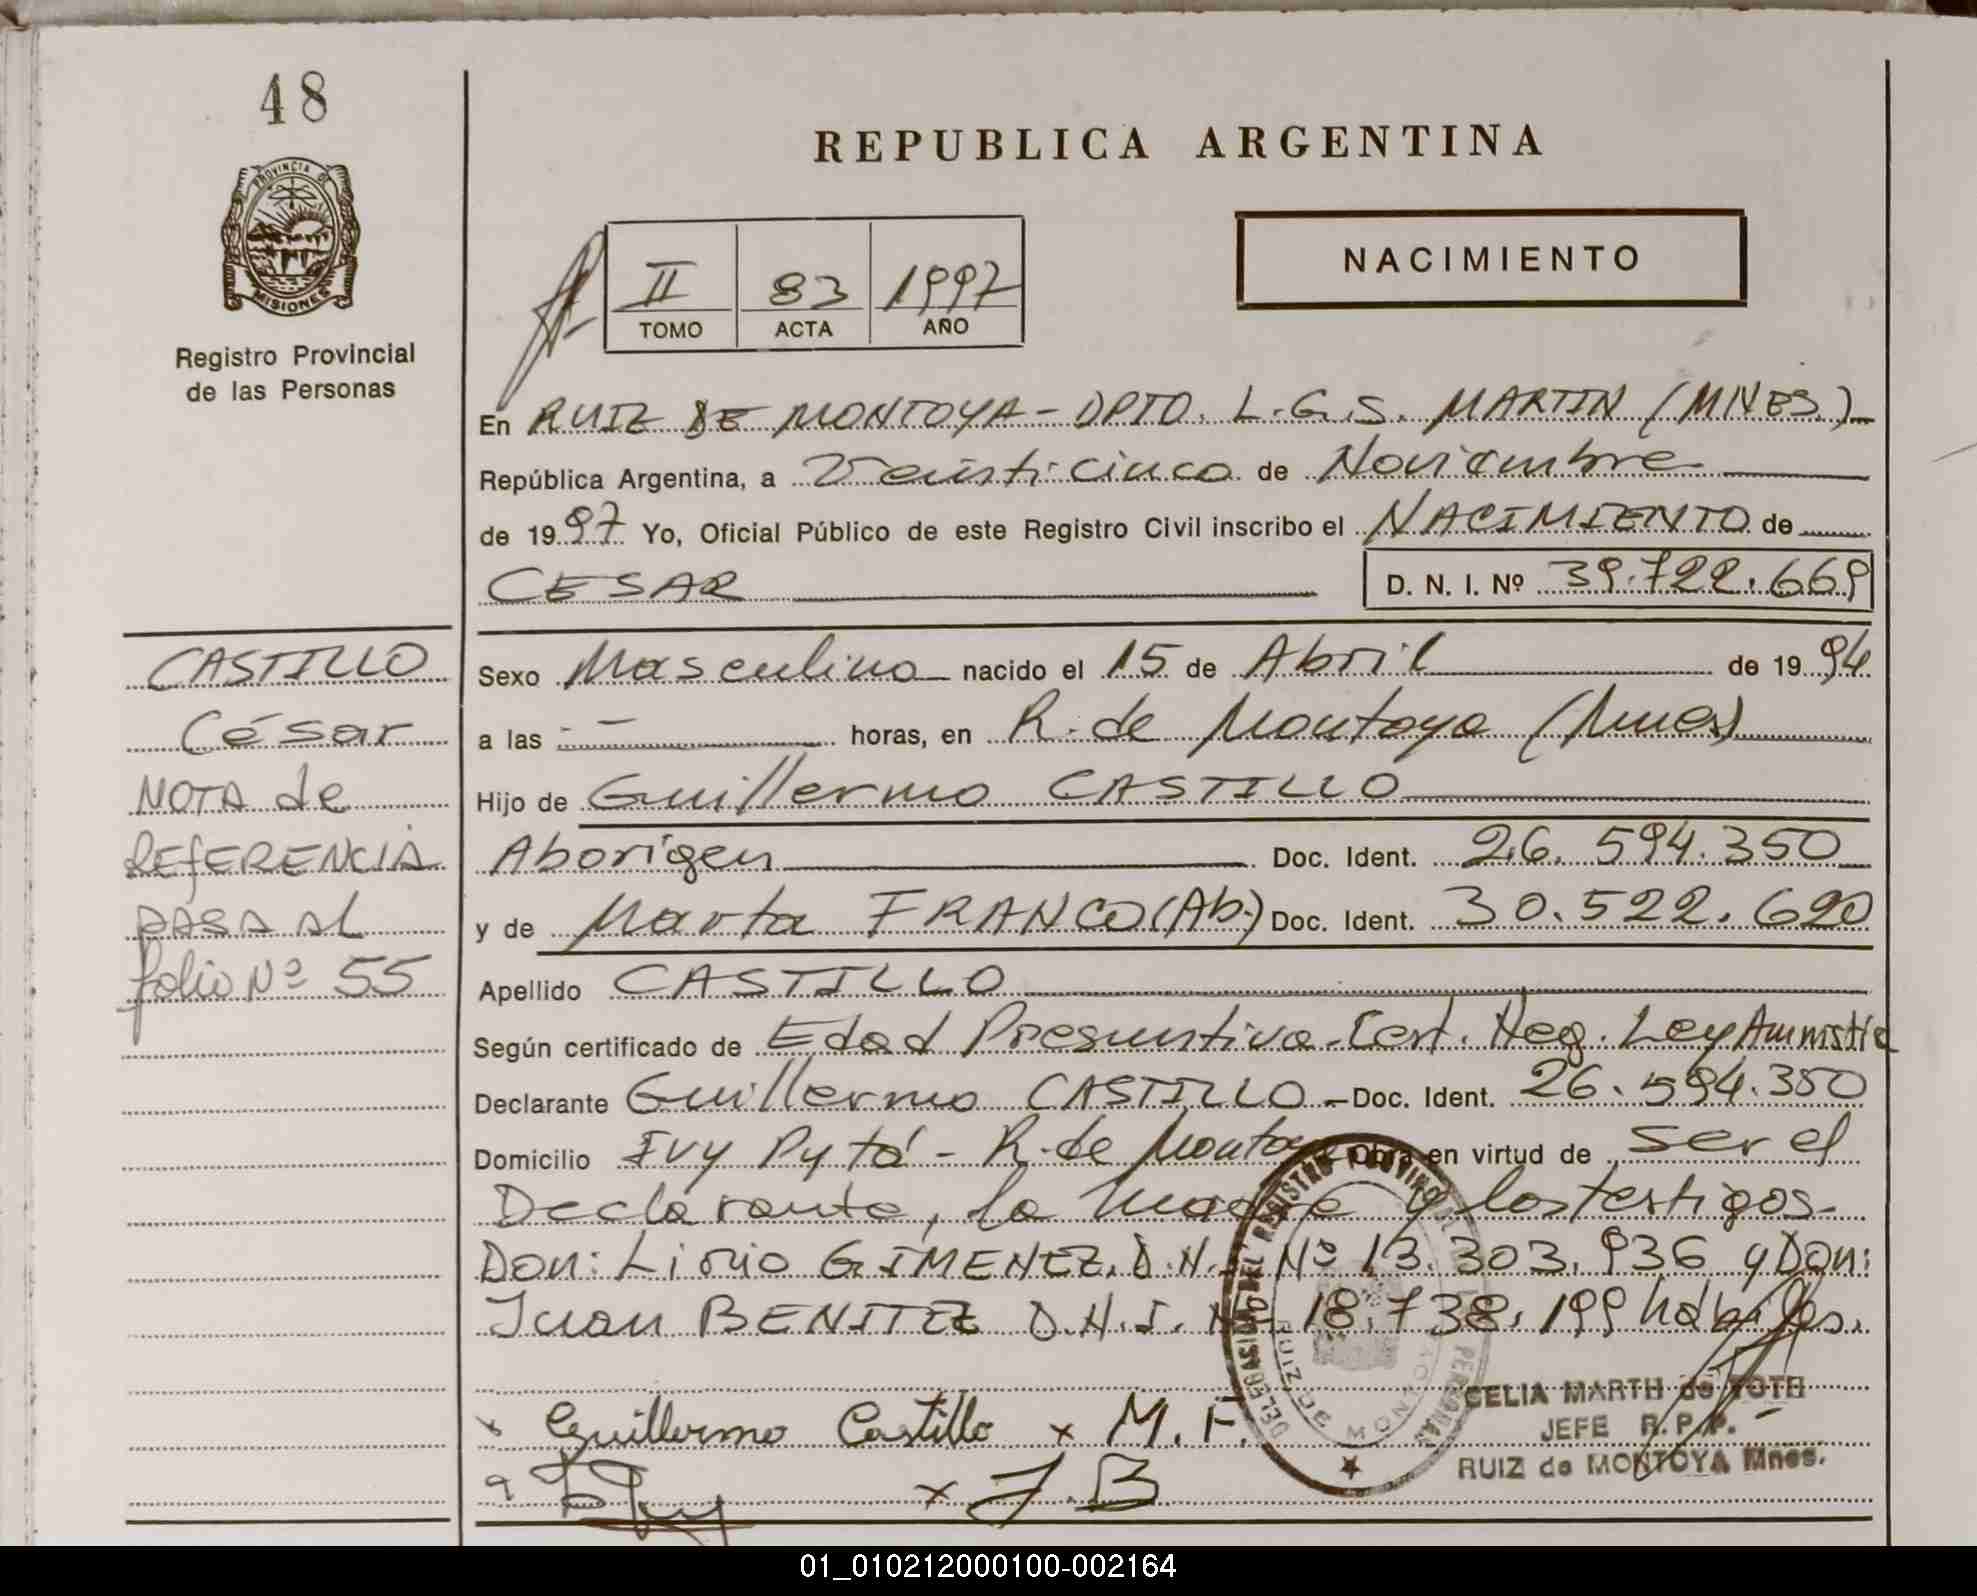 48
REPUBLICA ARGENTINA
PROVINCIA DE
MISIONES
II 83 1997
TOMO ACTA AÑO
NACIMIENTO
Registro Provincial
de las Personas
En RUIZ DE MONTOYA - DPTO. L.G.S. MARTIN (MNES)
República Argentina, a Veinticinco de Noviembre
de 1997 Yo, Oficial Público de este Registro Civil inscribo el NACIMIENTO de
CESAR D. N. I. Nº 39.722.669
CASTILLO
César
NOTA de
REFERENCIA
PASA AL
folio Nº 55
Sexo Masculino nacido el 15 de Abril de 1994
a las - - horas, en R. de Montoya (Mnes)
Hijo de Guillermo CASTILLO
Aborigen Doc. Ident. 26.594.350
y de Marta FRANCO (Ab.) Doc. Ident. 30.522.620
Apellido CASTILLO
Según certificado de Edad Presuntiva - Cert. Neg. Ley Amnistia
Declarante Guillermo CASTILLO - Doc. Ident. 26.594.350
Domicilio Ivy Pytá - R. de Montoya Obra en virtud de ser el
Declarante, la madre y los testigos.
Don: Lirio GIMENEZ. D.N.I. Nº 13.303.936 y Don:
Juan BENITEZ D.N.I. Nº 18.738.199 hábiles.
DELEGACION DEL REGISTRO PROVINCIAL DE LAS PERSONAS
RUIZ DE MONTOYA
CELIA MARTH de TOTH
JEFE R.P.P.
RUIZ de MONTOYA Mnes.
x Guillermo Castillo x M. F.
x J. B
01_010212000100-002164